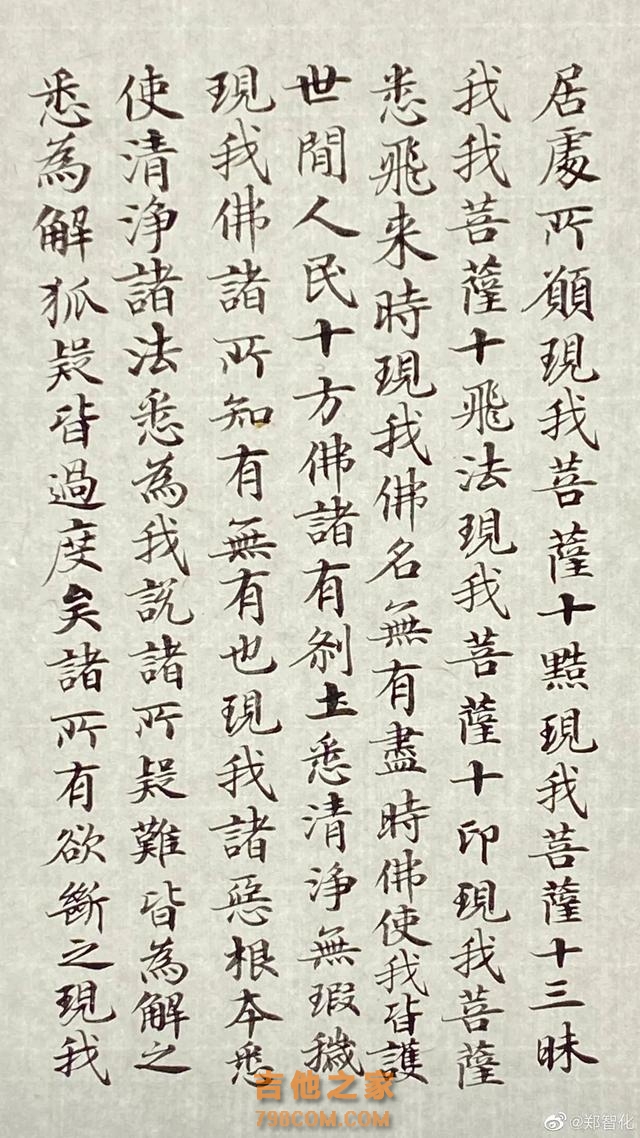 居處所願現我菩薩十黠現我菩薩十三昧
我我菩薩十飛法現我菩薩十印現我菩薩
悉飛来時現我佛名無有盡時佛使我皆護
世間人民十方佛諸有刹土悉清淨無瑕穢
現我佛諸所知有無有也現我諸惡根本悉
使清淨諸法悉為我説諸所疑難皆為解之
悉為解狐疑皆過度矣諸所有欲斷之現我
吉他之家
798COM.COM
@郑智化